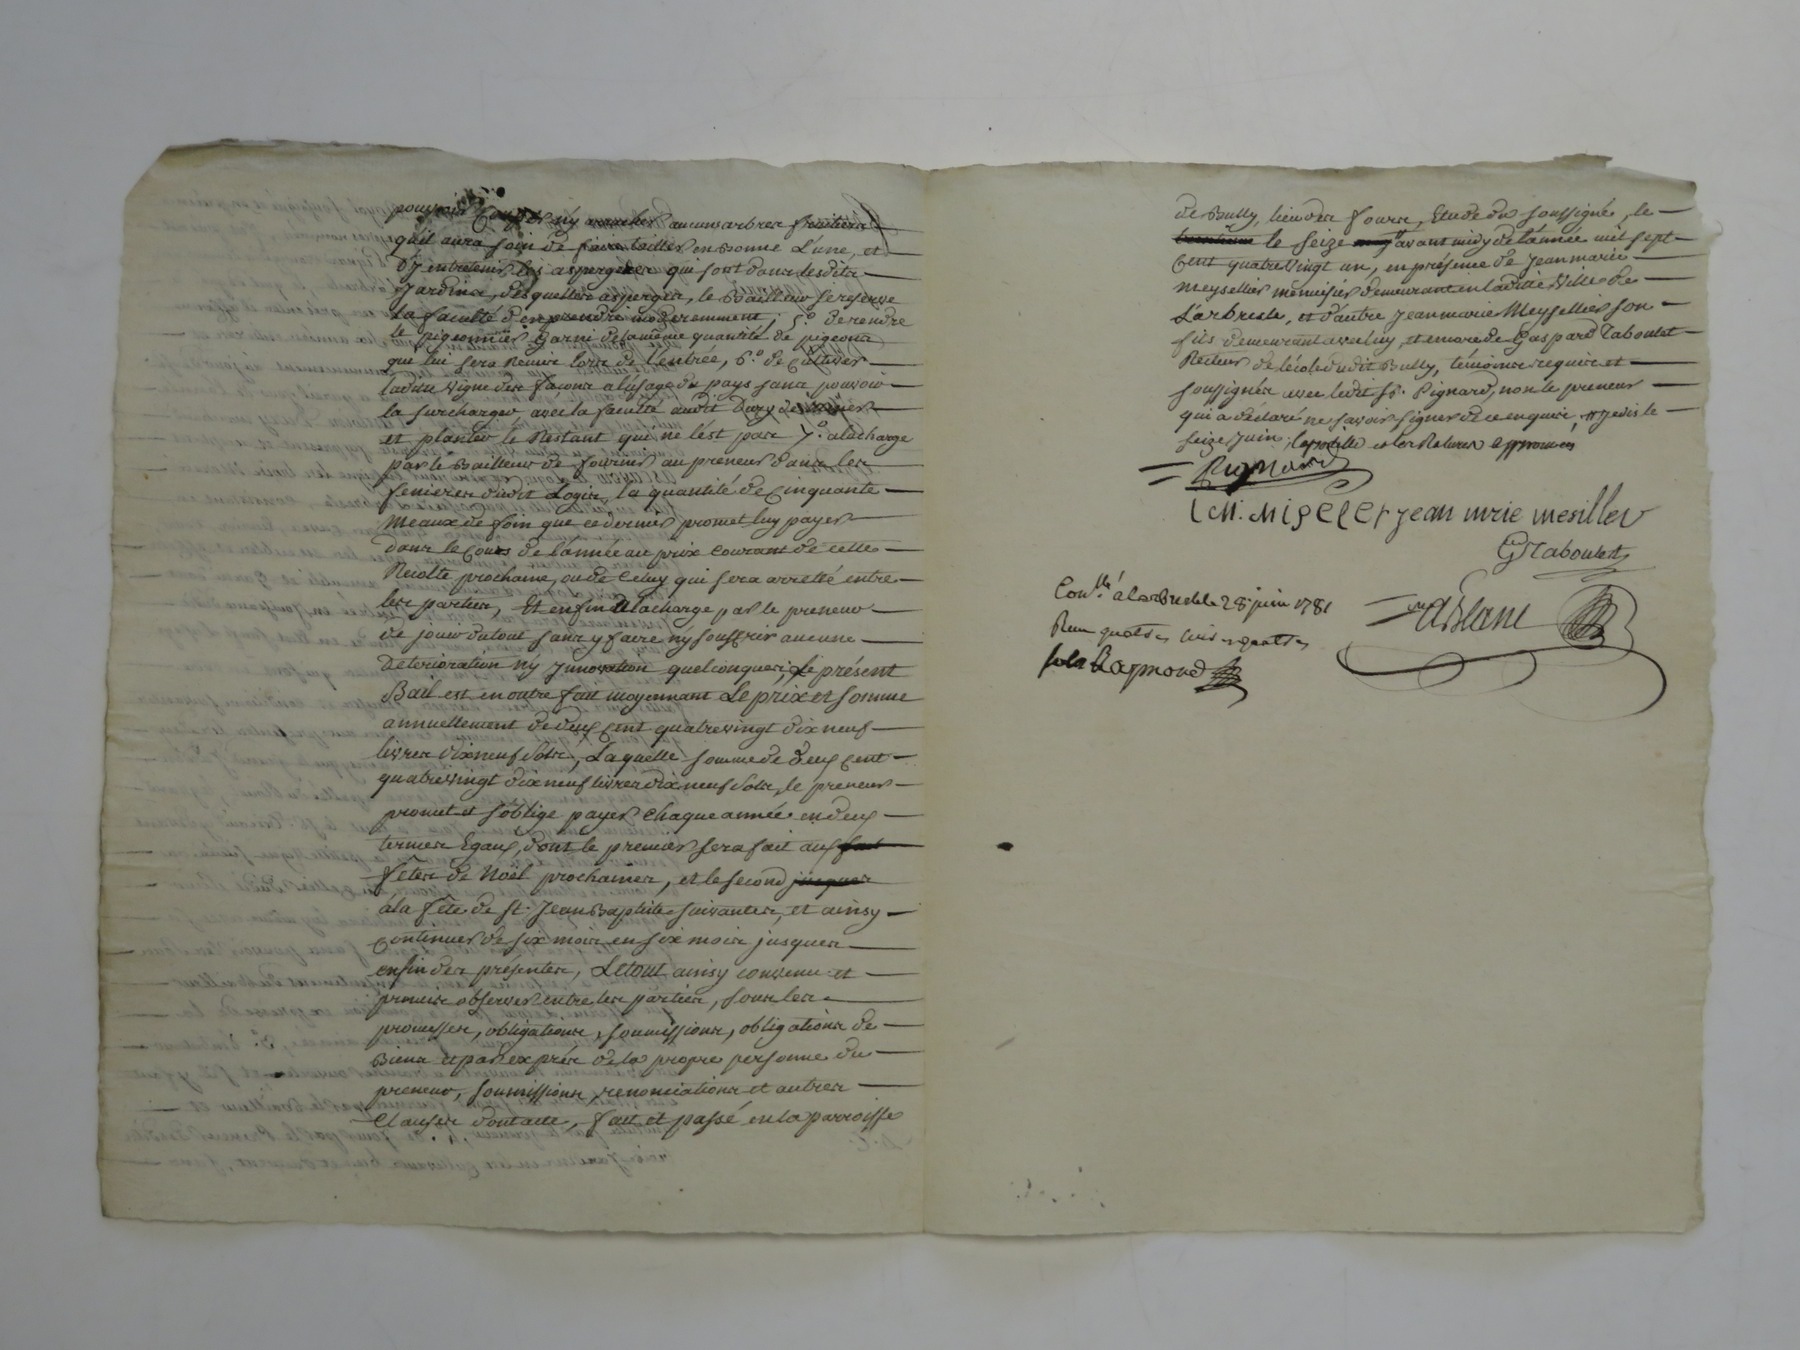 pouvoir couper n'y arracher aucuns arbres fruitiers
quil aura soin de faire tailler en bonne Lune, et
d'y entretenir les asperges qui sont dans lesdits
Jardins, desquelles asperges, le Bailleur se reserve
la faculté d'en prendre moderemment; 5.º de rendre
le pigeonnier Garni de la même quantité de pigeons
que lui sera Remise lors de l'entrée, 6.º de Cultiver
ladite vigne des façons a l'usage du pays sans pouvoir
la surcharger, avec la faculté audit
et planter le Restant qui ne l'est pas 7.º a la charge
par le Bailleur de fournir au preneur dans les
fenieres dudit Logis, la quantité de Cinquante
Meaux de foin que ce dernier promet luy payer
dans le Cours de l'année au prix Courant de cette
Recolte prochaine, ou de Celuy qui sera arretté entre
les parties, Et enfin a la charge par le preneur
de jouir du tout sans y faire n'y souffrir aucune
Deterioration n'y Innovation quelconques; Le présent
Bail est en outre fait moyennant Le prix et somme
annuellement de deux Cent quatrevingt dix neuf
livres dix neuf sols, Laquelle somme de deux Cent
quatrevingt dix neuf livres dix neuf sols, le preneur
promet et s'oblige payer Chaque année en deux
termes Egaux, dont le premier sera fait aux
fêtes de Noël prochaines, et le second jusques
a la fête de St. Jean Baptiste suivantes, et ainsy
Continuer de six mois en six mois jusques
enfin des présentes, Le tout ainsy convenu et
promis observer entre les parties, sous les
promesses, obligations, soumissions, obligations de
Biens et par exprès de la propre personne du
preneur, soumissions, renonciations et autres
Clauses dont acte, fait et passé en la parroisse
de Bully, lieu des fours, Etude du soussigné, le
le seize avant midy de l'année mil sept
Cent quatrevingt un, en présence de Jean marie
Meysellier menuisier demeurant en ladite Ville de
L'arbresle, et d'autre Jean marie Meysellier son
fils demeurant avec luy, et encore de Gaspard Taboulet
Recteur de l'école dudit Bully, témoins requis et
soussignés avec ledit Sr. Pignard, non le preneur
qui a déclaré ne savoir signer de ce enquis, et je dis le
seize Juin, les Ratures approuvées
Pignard
J M. Miselet jean mrie mesiller
G Taboulet
Con.llé à Larbresle le 28 juin 1781
Blanc
Raymond